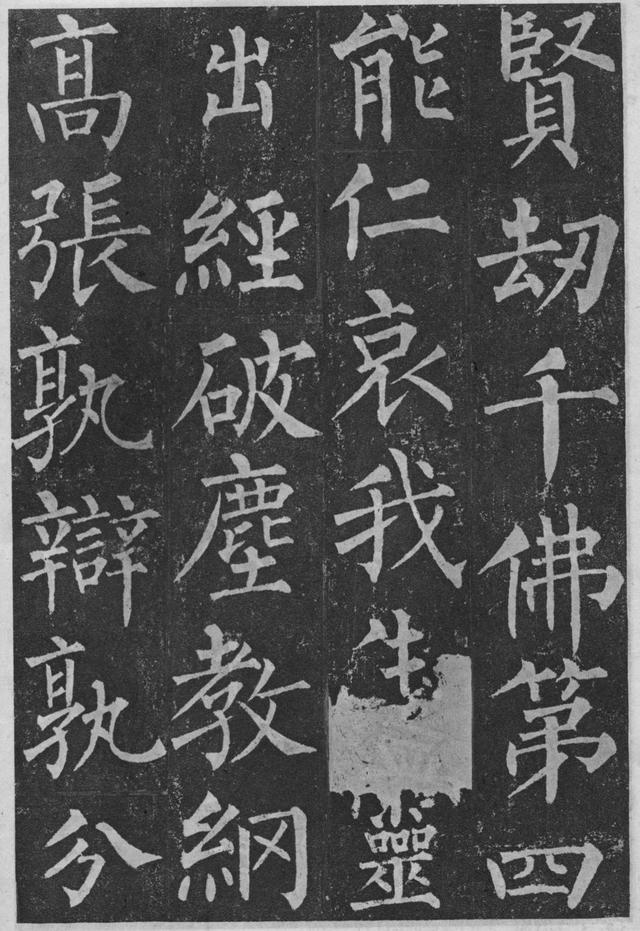 賢刼千佛第四
能仁哀我生靈
出經破塵教綱
髙張孰辯孰分